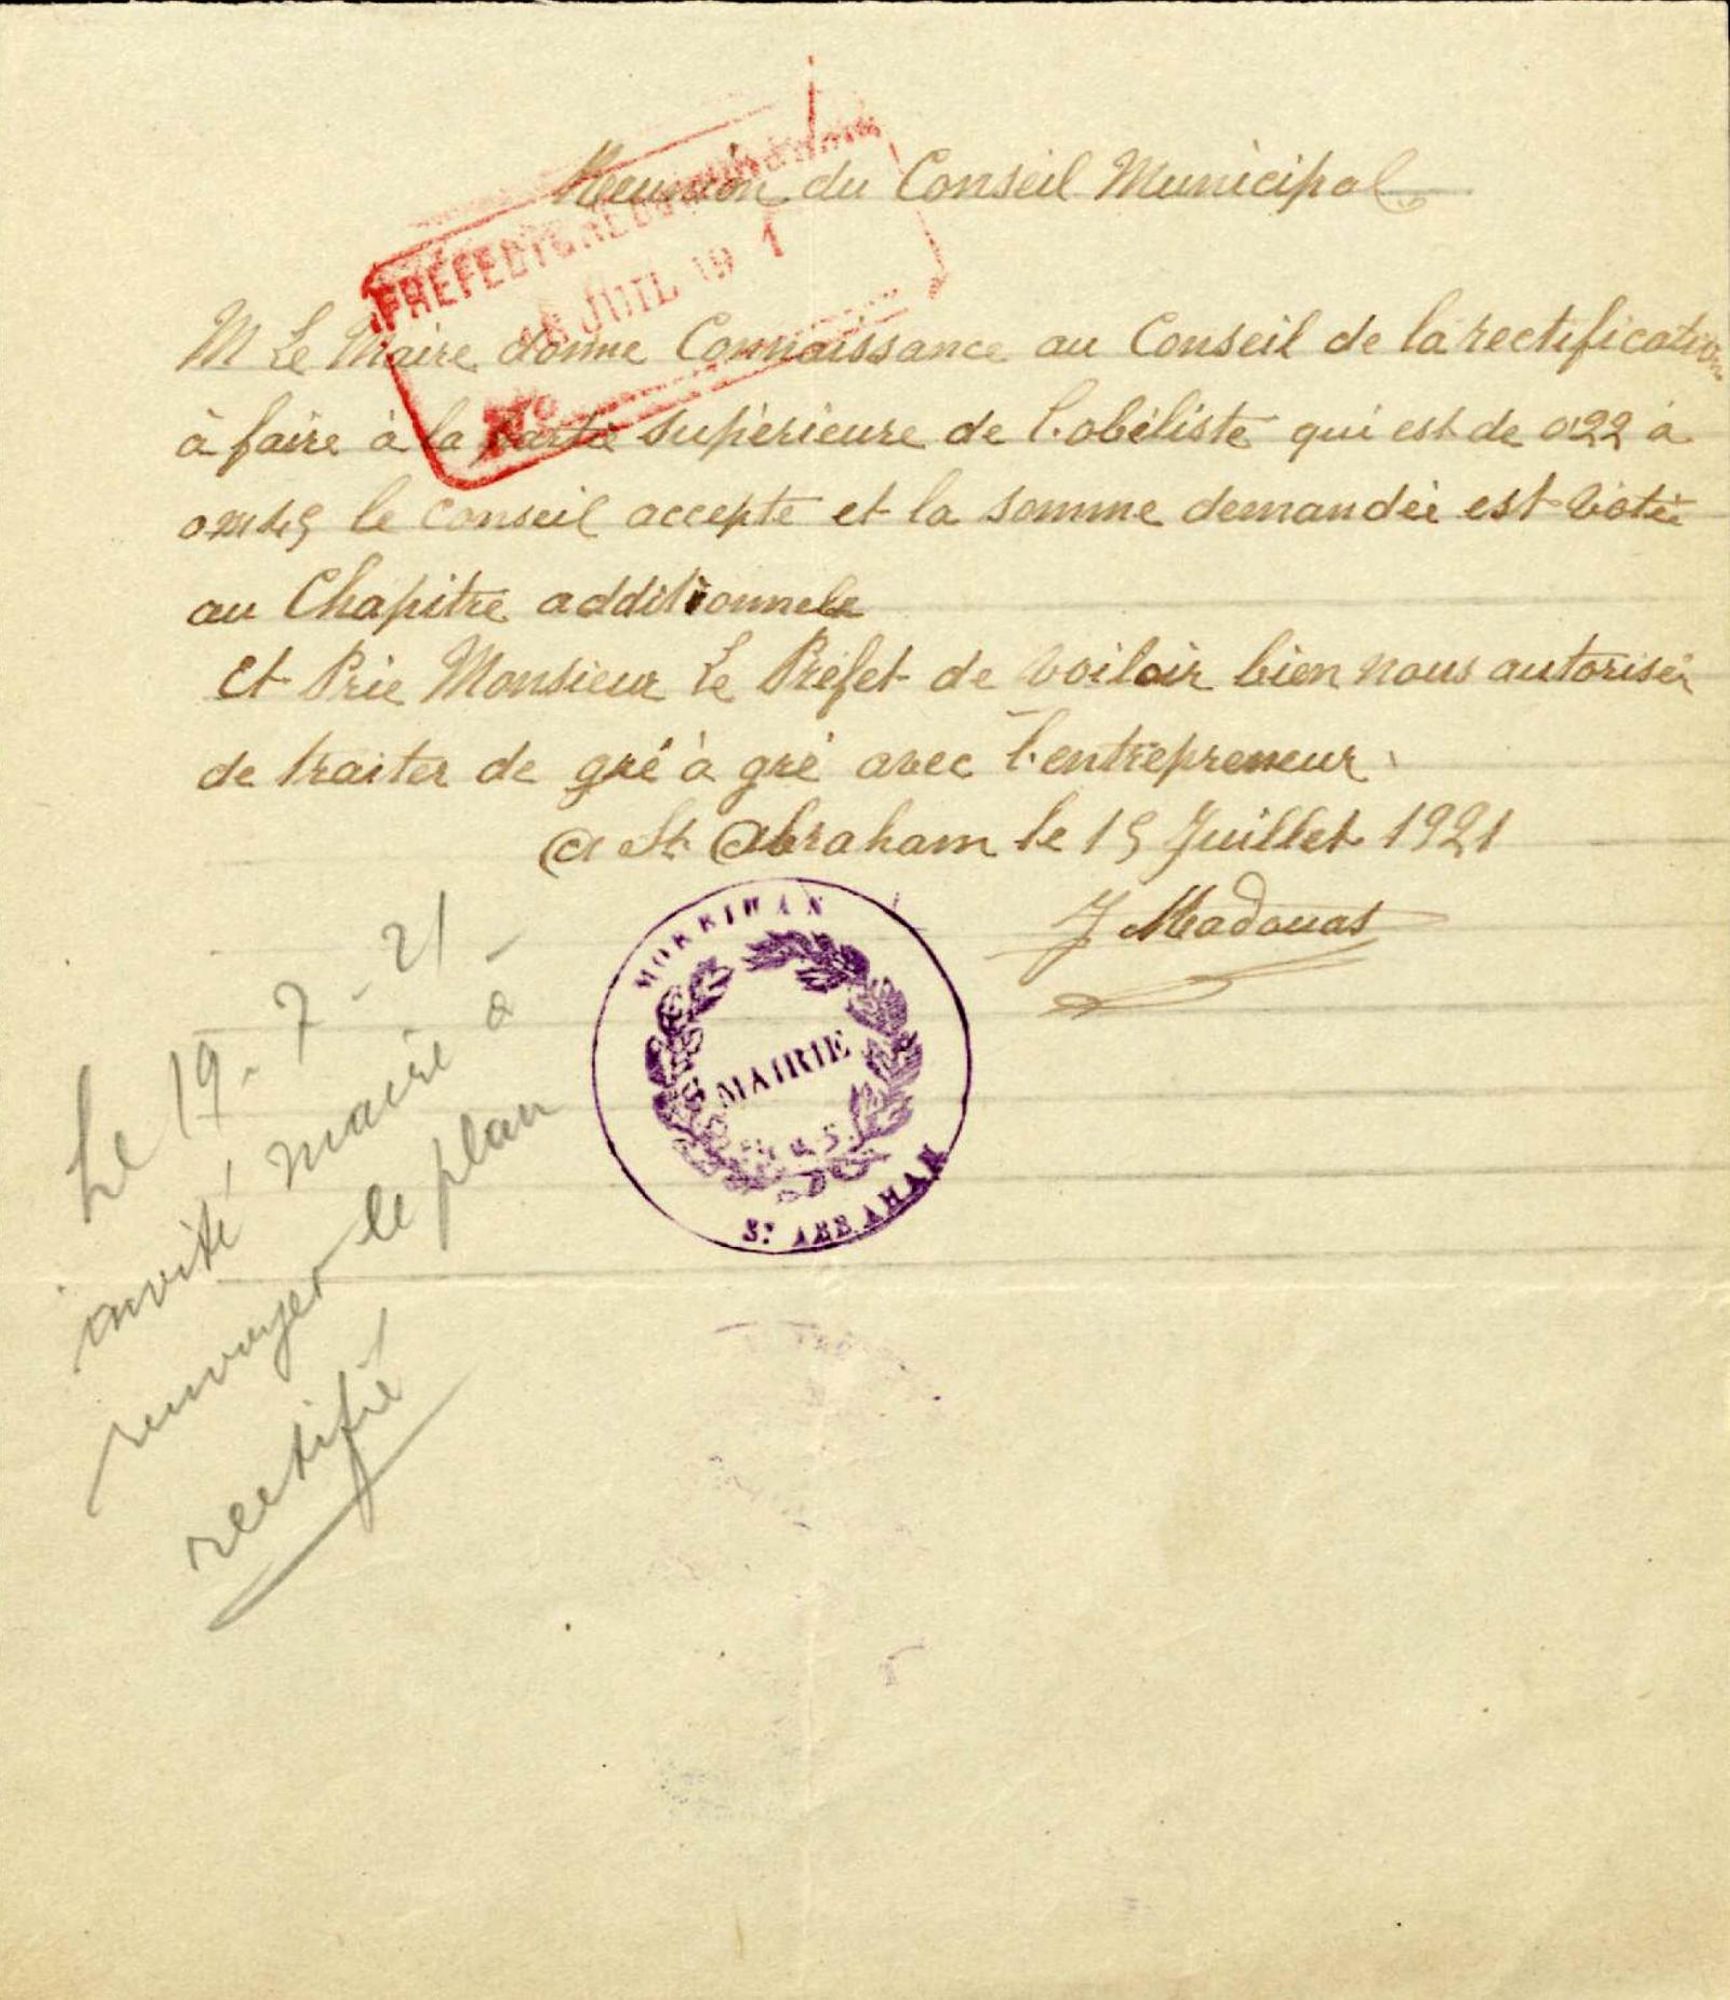 Reunion du Conseil Municipal
PRÉFECTURE DU MORBIHAN
18 JUIL 19 1
M Le Maire donne Connaissance au Conseil de la rectification
à faire à la partie supérieure de l'obéliste qui est de 0.22 à
le Conseil accepte et la somme demandée est votée
au Chapitre additionnele
Et Prie Monsieur Le Préfet de voiloir bien nous autoriser
de traiter de gré à gré avec l'entrepreneur.
A St Abraham le 15 Juillet 1921
J Madouas
MORBIHAN
MAIRIE
ST ABRAHAM
Le 19-7-21-
invité maire à
renvoyer le plan
rectifié